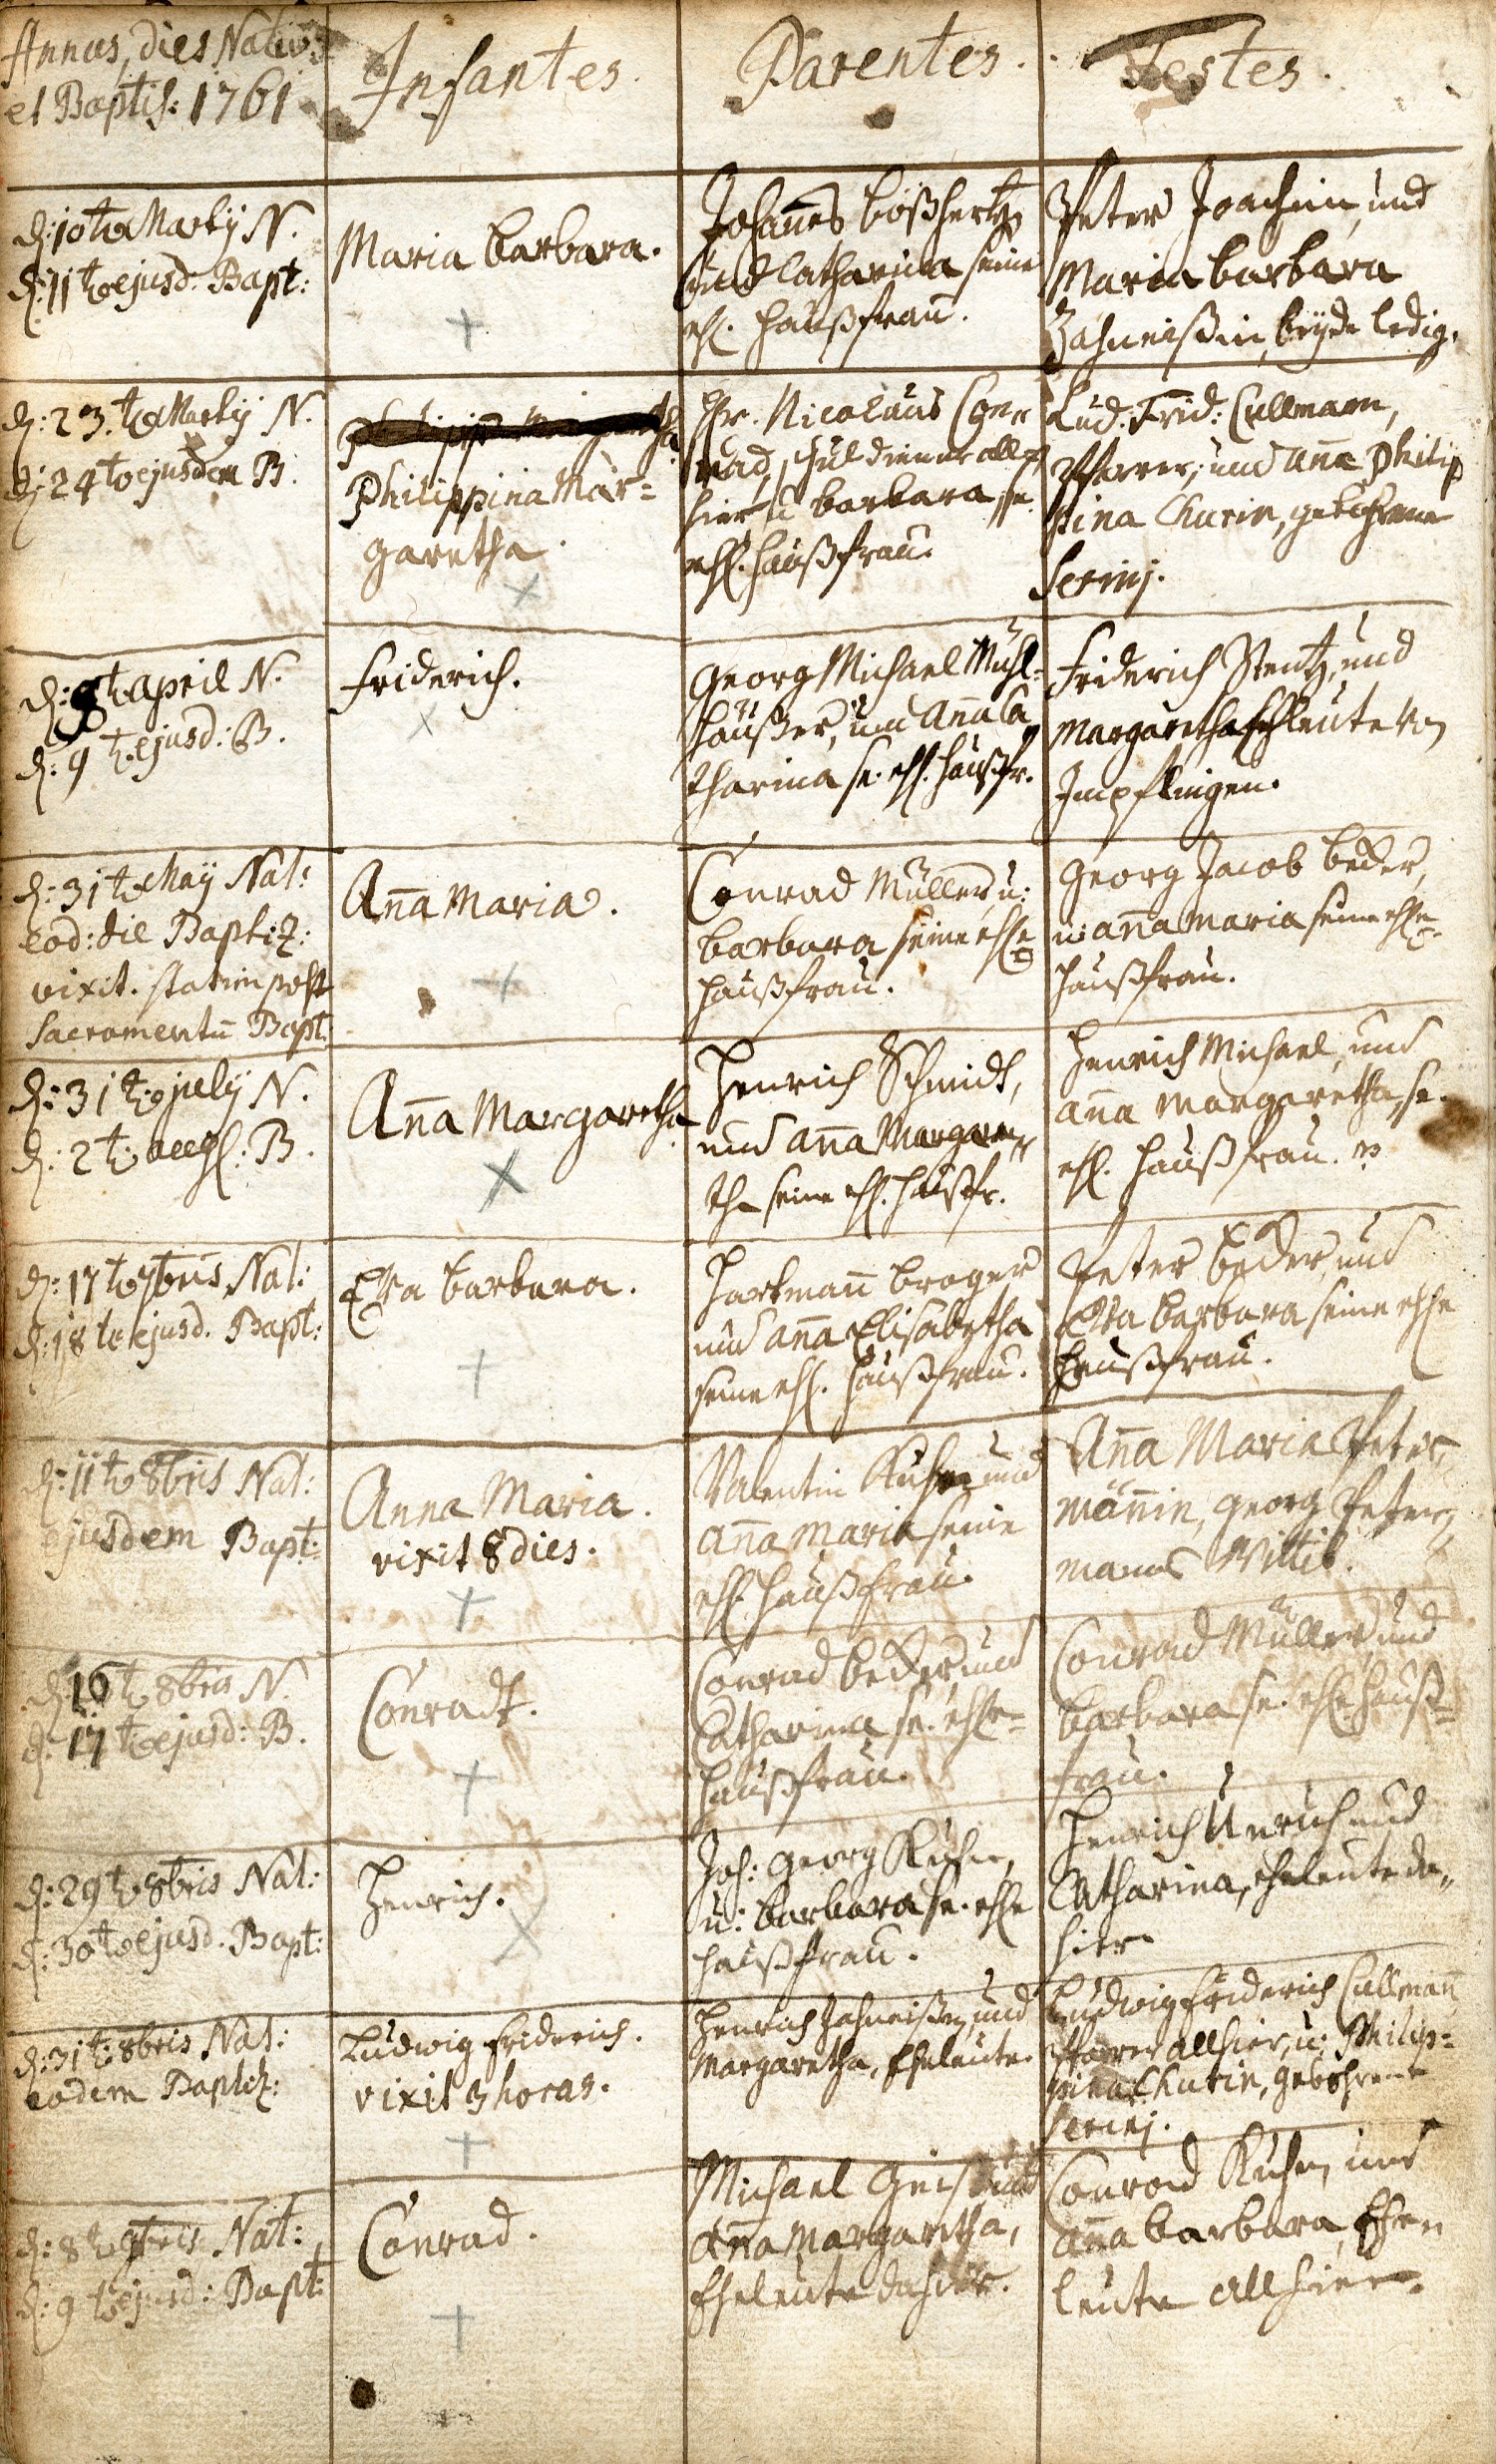 Annus, dies Nativ:
et Baptis: 1761
Infantes.
Parentes.
Testes.
d: 10t Martij N.
d: 11t ejusd: Bapt:
Maria Barbara.
Johañes Boßhertz
und Catharina seine
ehl. Haußfrau.
Peter Joachim, und
Maria Barbara
Zahneißin, beyde ledig.
d: 23.t Martij N.
d: 24t ejusdem B.
Philippina Mar=
garetha.
Hr. Nicolaus Con„
rad, Schuldiener all=
hier u Barbara, se.
ehl. Haußfrau.
Lud: Frid: Cullmann,
Pfarrer, und Anna Philip
pina Charin, gebohrene
Serini.
d: 8t April N.
d: 9t. ejusd: B.
Friderich.
Georg Michael Mühl=
häußer, und Aña Ca„
tharina se. ehl. Haußfr.
Friderich Stentz, und
Margaretha Ehleute von
Impflingen.
d: 31t May Nat:
eod: die Baptiz:
vixit. statim post
Sacramentū Bapt:
Aña Maria.
Conrad Müller, u:
Barbara seine ehl.
Haußfrau.
Georg Jacob Becker,
u: Aña Maria seine ehl.
Haußfrau.
d: 31t july N.
d: 2t. aug: B.
Aña Margaretha
Henrich Schmidt,
und Aña Margare„
tha seine ehl. Haußfr.
Henrich Michael, und
Aña Margaretha, se.
ehl. Haußfrau.
d: 17t 7bris Nat:
d: 18t ejusd. Bapt:
Eva Barbara.
Hartmañ Broger
und Aña Elisabetha
seine ehl. Haußfrau.
Peter Becker, und
Eva Barbara seine ehl
Haußfrau.
d: 11t 8bris Nat:
ejusdem Bapt:
Anna Maria.
vixit 8 dies.
Valentin Kuhn und
Aña Maria seine
ehl. Haußfrau.
Aña Maria Peter„
mäñin, Georg Peter„
manns Wittib.
d: 16t 8bris N.
d: 17t ejusd: B.
Conradt.
Conrad Becker, und
Catharina se. ehl=
Haußfrau.
Conrad Müller, und
Barbara se. ehl. Hauß=
frau.
d: 29t 8bris Nat:
d: 30t ejusd. Bapt:
Henrich.
Joh: Georg Kuhn,
u: Barbara se. ehl
Haußfrau.
Henrich Unruh und
Catharina, Eheleute da„
hier.
d: 31t 8bris Nat:
eodem Baptiz:
Ludwig Friderich.
vixit 3 horas.
Henrich Zahneißen, und
Margaretha, Eheleute.
Ludwig Friderich Cullmañ
Pfarrer allhier, u: Philip=
pina Charin, gebohrene
Serini.
d: 8t 9bris Nat:
d: 9t ejusd: Bapt:
Conrad.
Michael Geiß und
Aña Margaretha,
Eheleute dahier.
Conrad Kuhn, und
Aña Barbara, Ehe„
leute allhier.